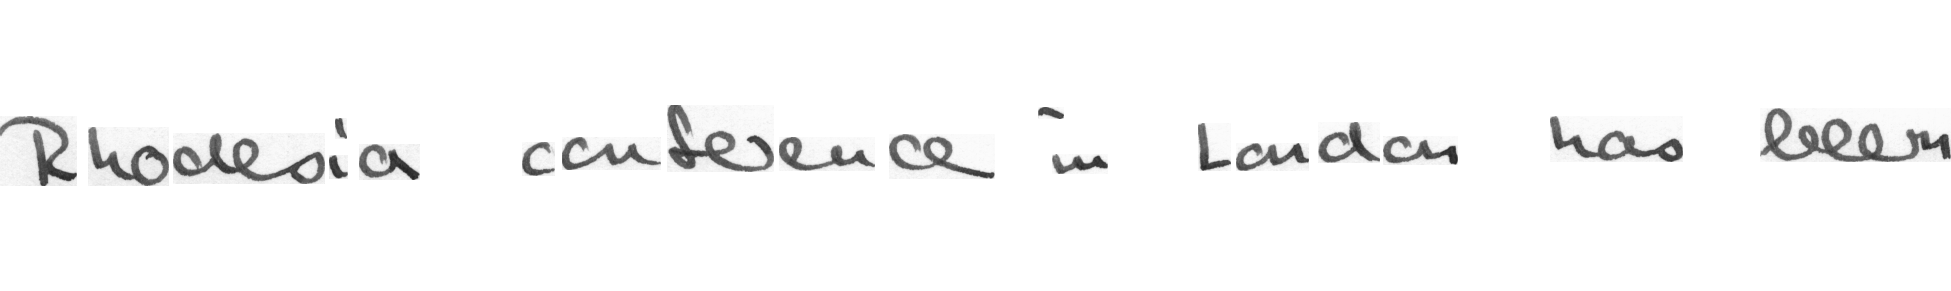 Rhodesia conference in London has been